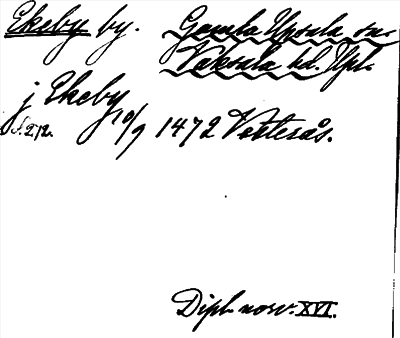 Ekeby by. Gamla Upsala sn.
Vaksala hd. Upl.
j Ekeby
s. 272. 10/9 1472 Vesterås.
Dipl. norv. XVI.